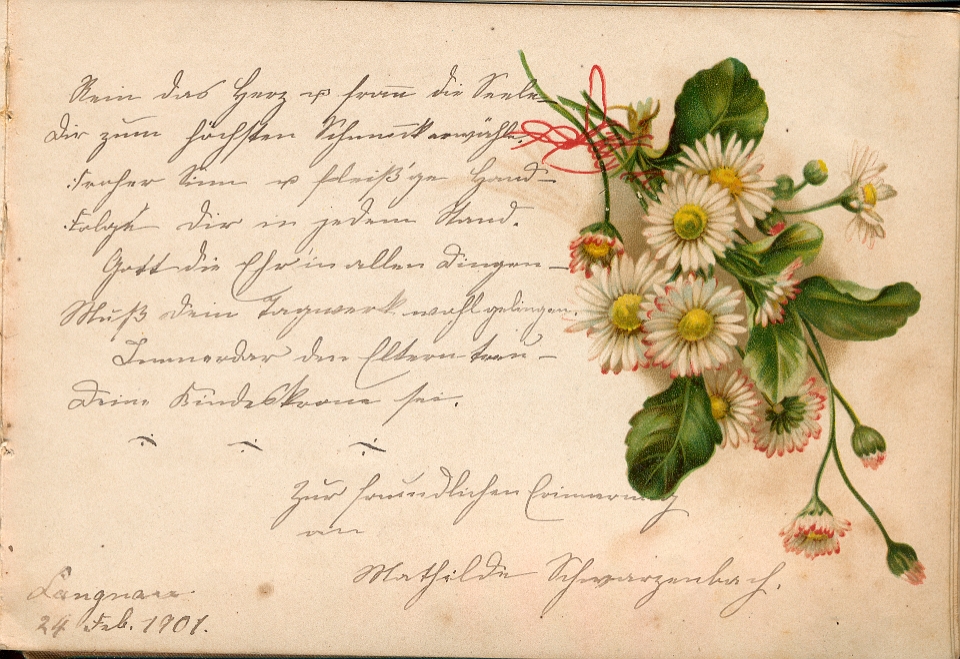 Rein das Herz u. fromm die Seele
Dir zum höchsten Schmuck erwähle.
Froher Sinn u fleiß'ge Hand
Folge Dir in jedem Stand.
Gott die Ehr' in allen Dingen
Muß Dein Tagwerk wohl gelingen.
Immerdar den Eltern treu
Deine Kindeskrone sei.
Zur freundlichen Erinnerung
an
Mathilde Schwarzenbach.
Langnau
24 Feb. 1901.